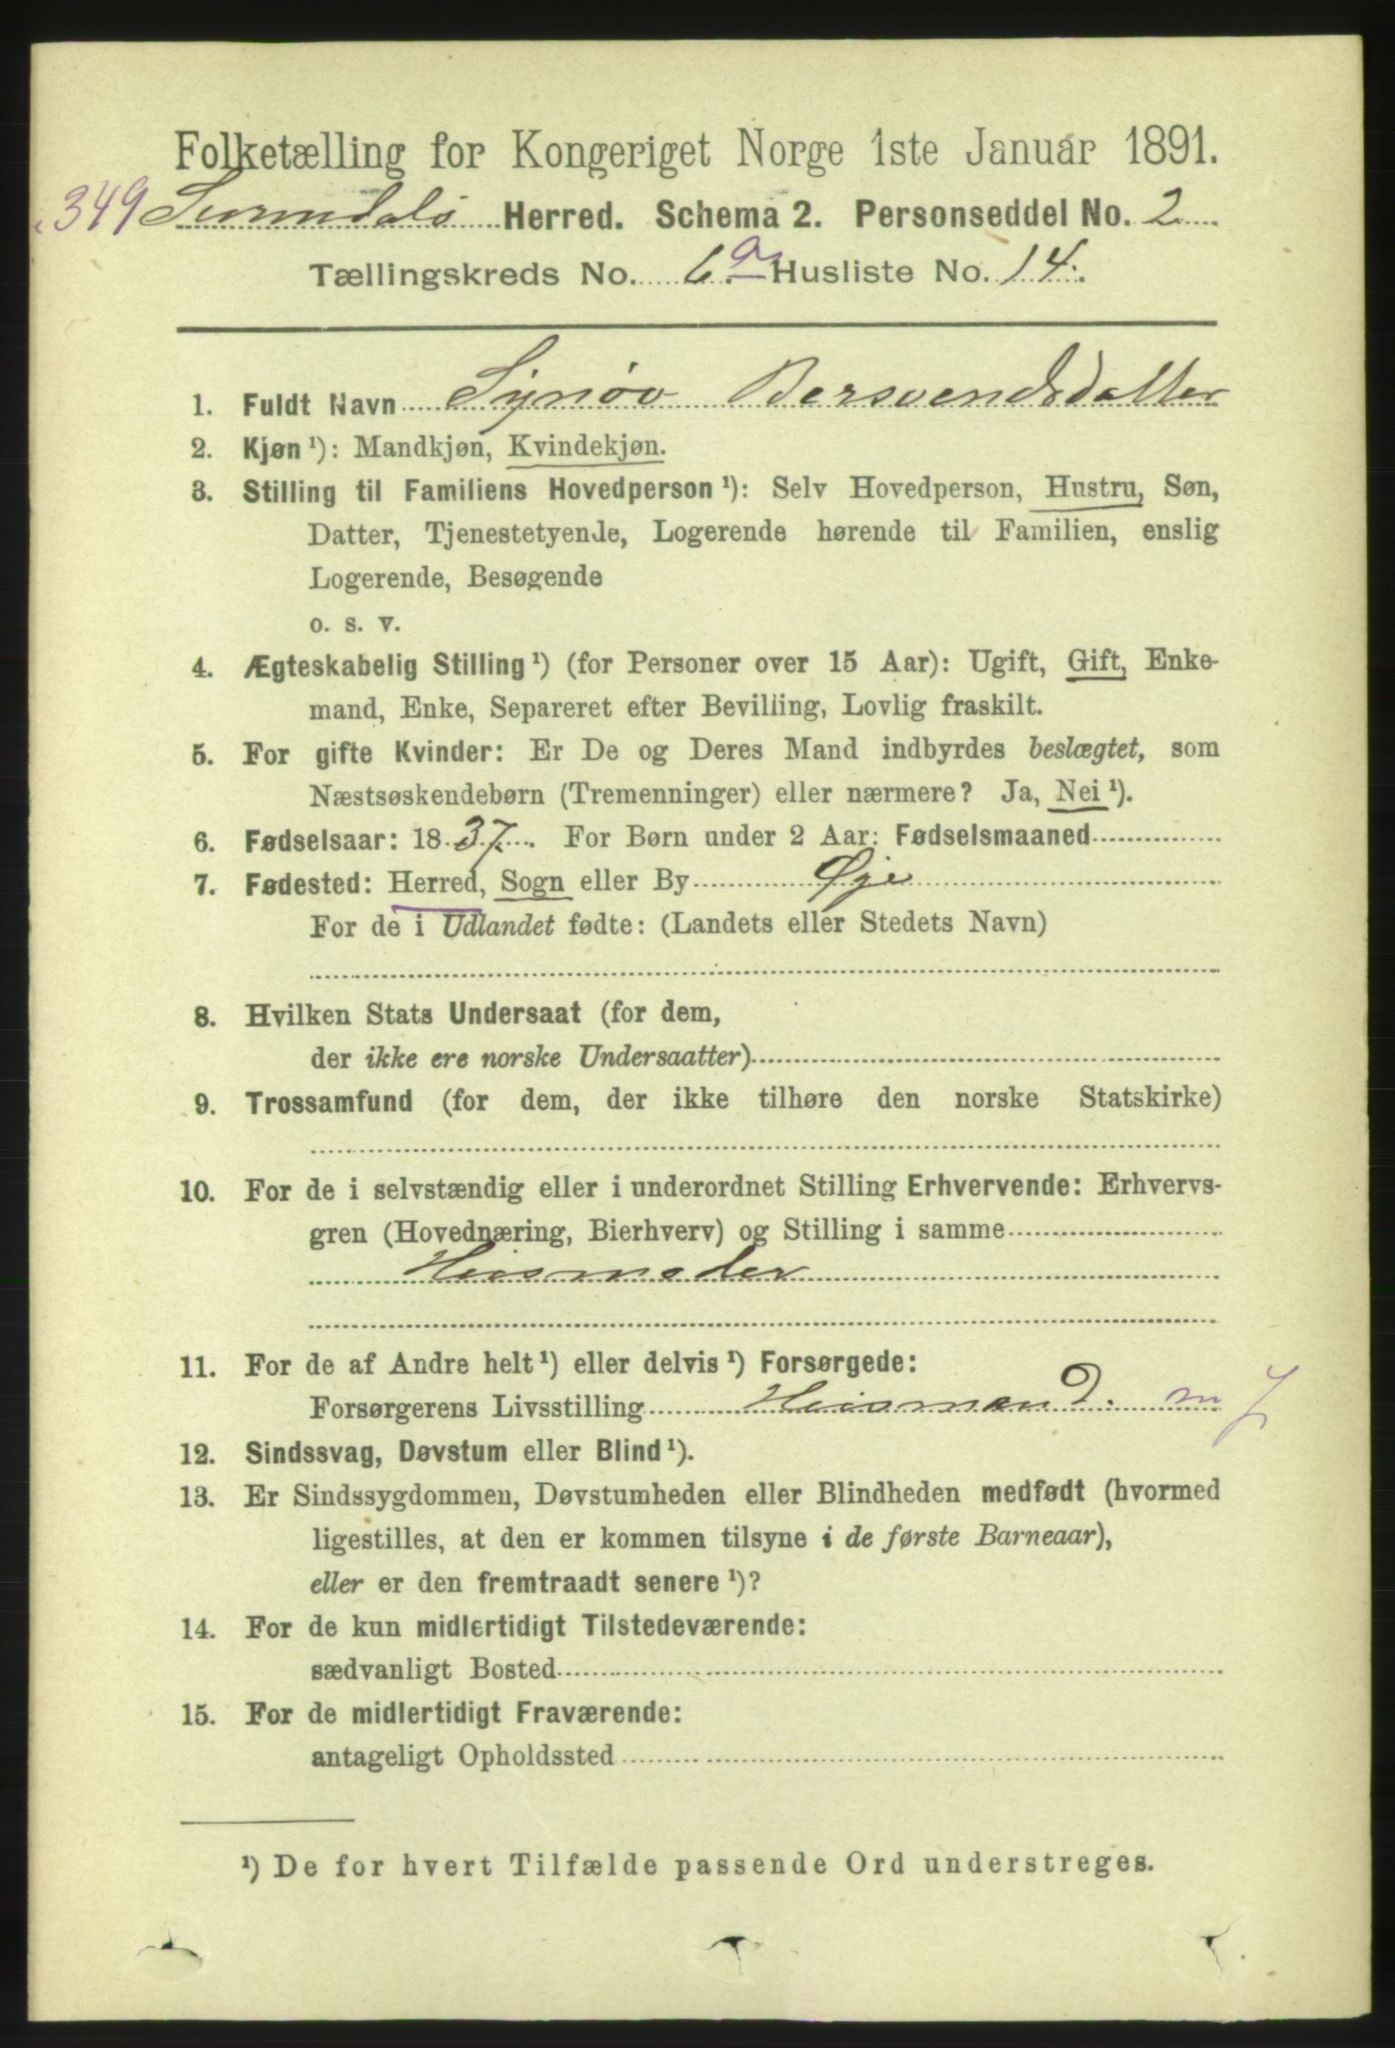 Folketælling for Kongeriget Norge 1ste Januar 1891.
349 Surendals Herred. Schema 2. Personseddel No. 2
Tællingskreds No. 6 a Husliste No. 14.
1. Fuldt Navn Synøv Bersvendsdatter
2. Kjøn ¹): Mandkjøn, Kvindekjøn.
3. Stilling til Familiens Hovedperson ¹): Selv Hovedperson, Hustru, Søn,
Datter, Tjenestetyende, Logerende hørende til Familien, enslig
Logerende, Besøgende
o. s. v.
4. Ægteskabelig Stilling ¹) (for Personer over 15 Aar): Ugift, Gift, Enke-
mand, Enke, Separeret efter Bevilling, Lovlig fraskilt.
5. For gifte Kvinder: Er De og Deres Mand indbyrdes beslægtet, som
Næstsøskendebørn (Tremenninger) eller nærmere? Ja, Nei ¹).
6. Fødselsaar: 1837. For Børn under 2 Aar: Fødselsmaaned
7. Fødested: Herred, Sogn eller By Øje
For de i Udlandet fødte: (Landets eller Stedets Navn)
8. Hvilken Stats Undersaat (for dem,
der ikke ere norske Undersaatter)
9. Trossamfund (for dem, der ikke tilhøre den norske Statskirke)
10. For de i selvstændig eller i underordnet Stilling Erhvervende: Erhvervs-
gren (Hovednæring, Bierhverv) og Stilling i samme
Husmoder
11. For de af Andre helt ¹) eller delvis ¹) Forsørgede:
Forsørgerens Livsstilling Husmand. m J
12. Sindssvag, Døvstum eller Blind ¹).
13. Er Sindssygdommen, Døvstumheden eller Blindheden medfødt (hvormed
ligestilles, at den er kommen tilsyne i de første Barneaar),
eller er den fremtraadt senere ¹)?
14. For de kun midlertidigt Tilstedeværende:
sædvanligt Bosted
15. For de midlertidigt Fraværende:
antageligt Opholdssted
¹) De for hvert Tilfælde passende Ord understreges.